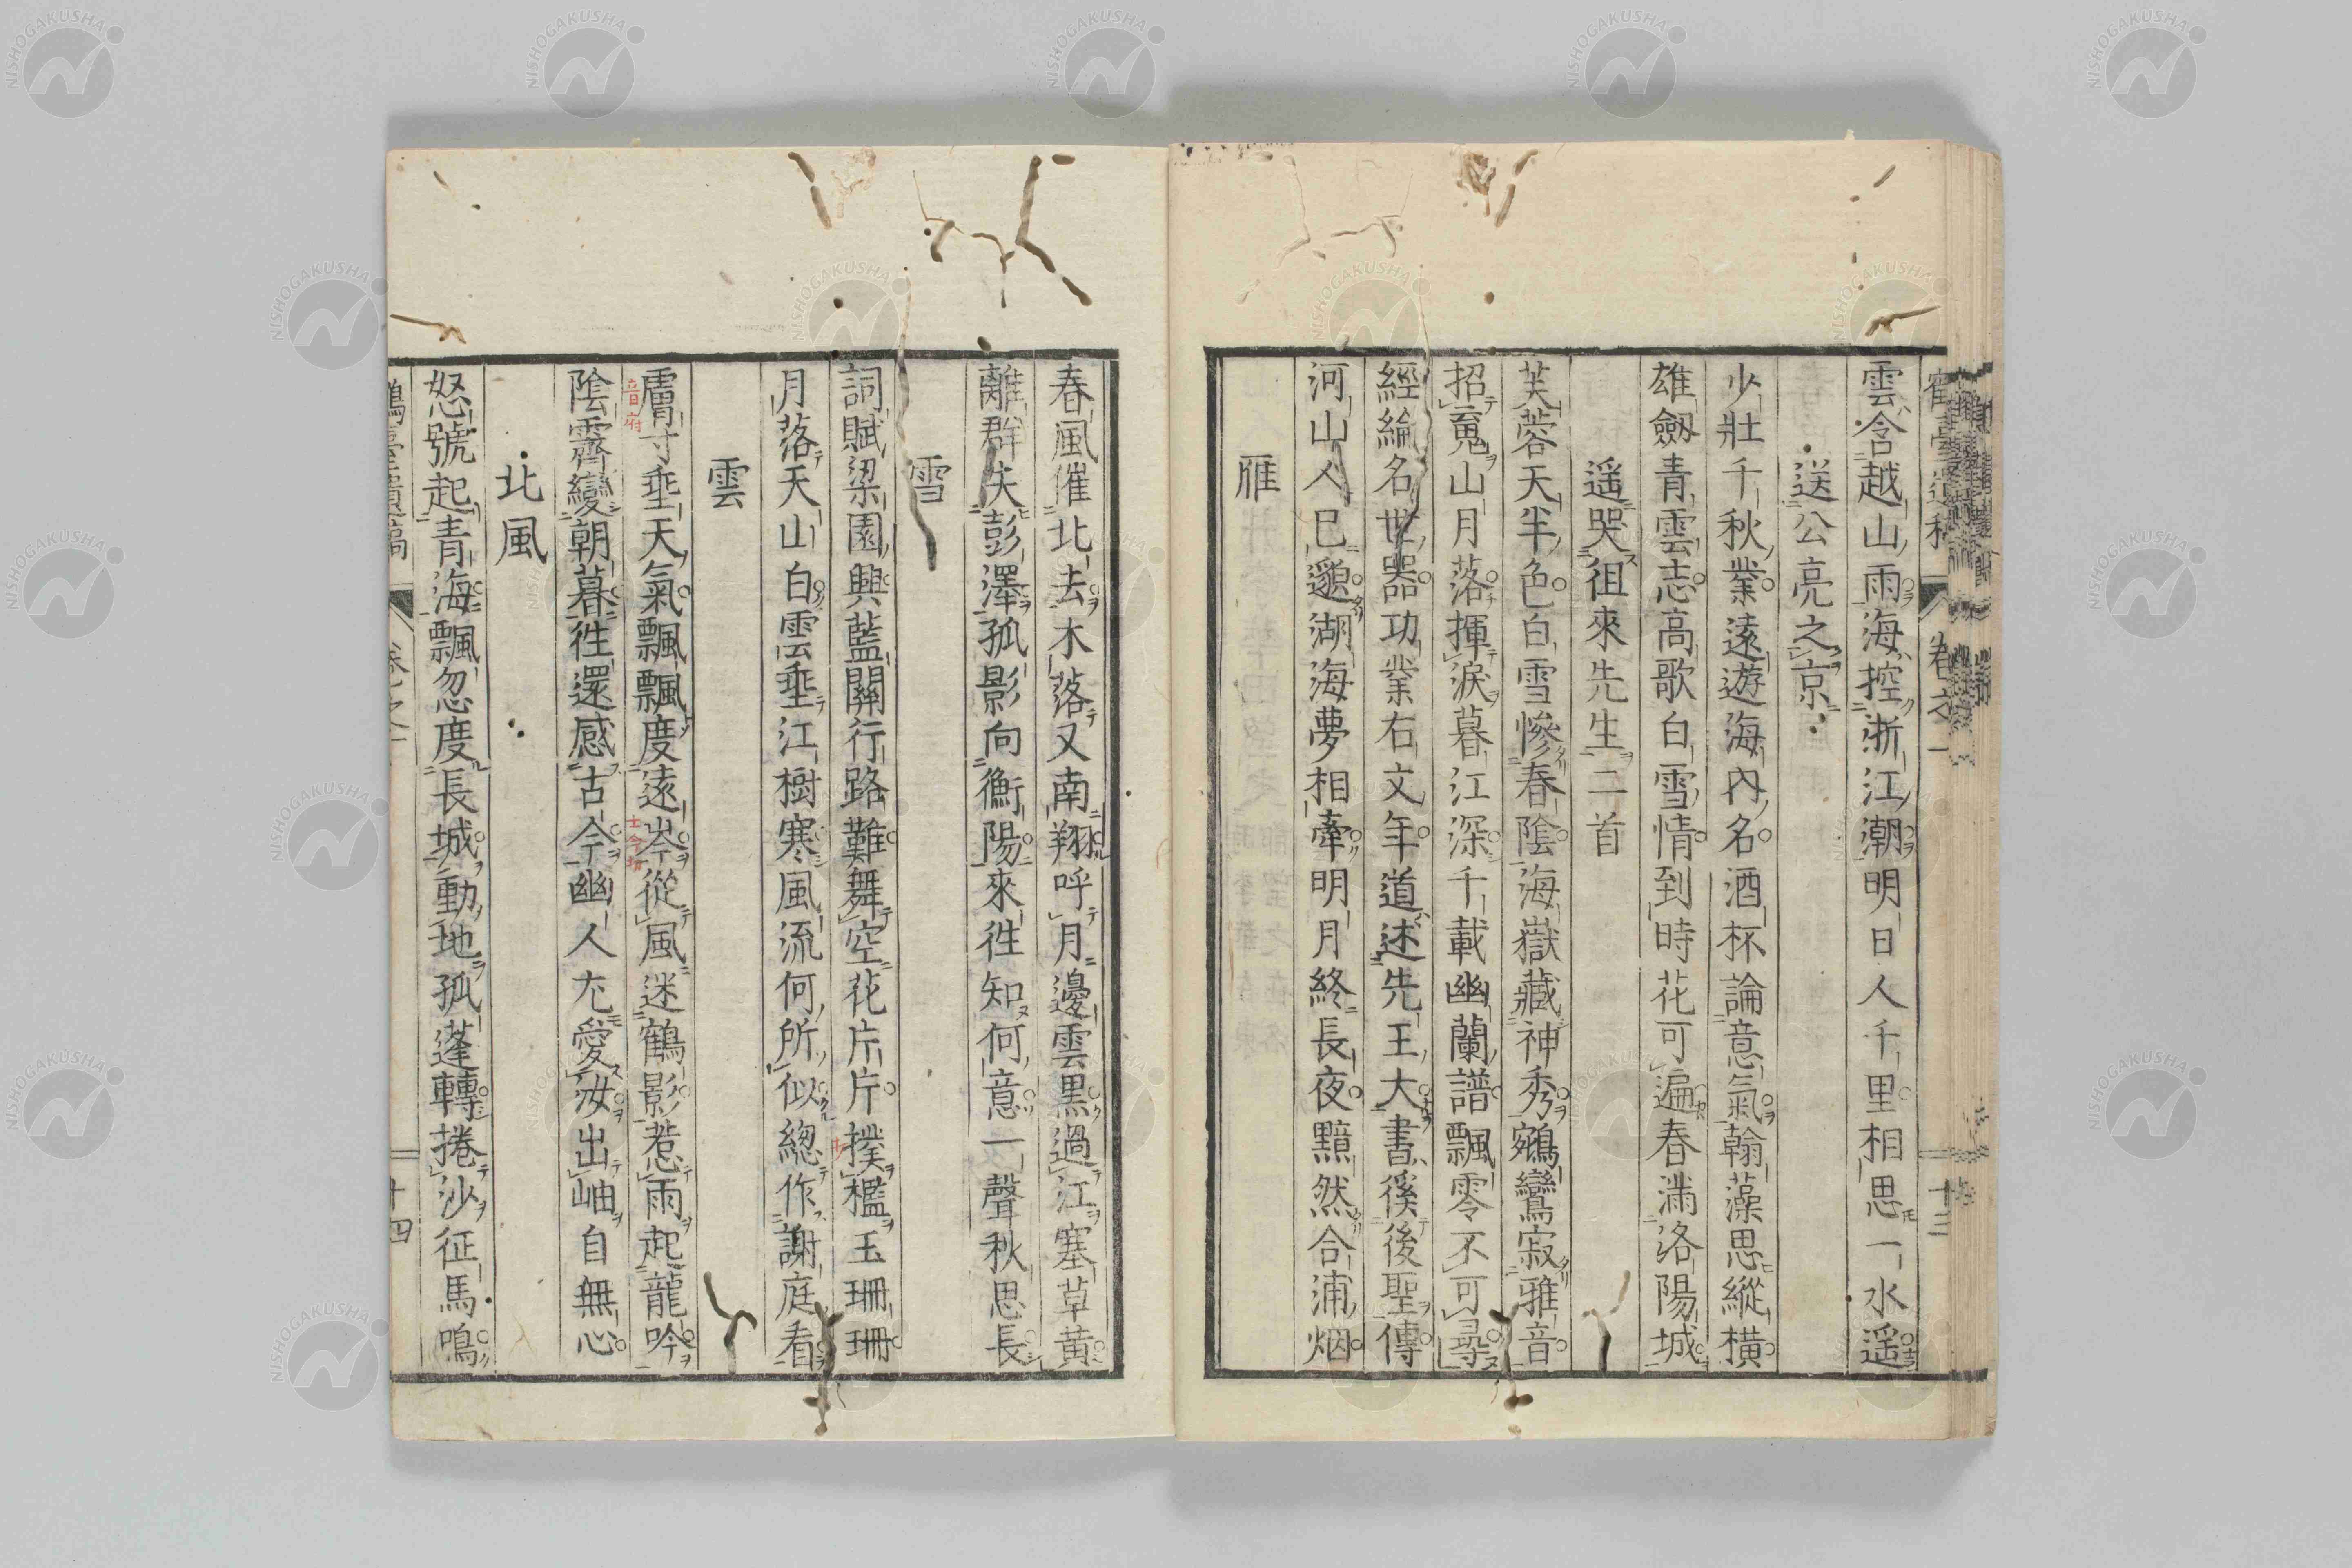 雲含越山雨海控浙江潮明日人千里相思一水遥
送公亮之京
少壯千秋業遠遊海內名酒杯論意氣翰藻思縱橫
雄劔青雲志高歌白雪情到時花可遍春滿洛陽城
遥哭徂來先生二首
芙蓉天半色白雪慘春陰海嶽藏神秀鵷鸞寂雅音
招䰟山月落揮淚暮江深千載幽蘭譜飄零不可尋
經綸名世器功業右文年道述先王大書徯後聖傳
河山人已邈湖海夢相牽明月終長夜黯然合浦烟
雁
春風催北去木落又南翔呼月邊雲黒過江塞草黄
離群失彭澤孤影向衡陽來徃知何意一聲秋思長
雪
詞賦梁園興藍關行路難舞空花片片撲檻玉珊珊
月落天山白雲垂江樹寒風流何所似總作謝庭看
雲
膚寸垂天氣飄飄度遠岑從風迷鶴影惹雨起龍吟
音府
士今切
陰霽變朝暮徃還感古今幽人尤愛汝出岫自無心
北風
怒號起青海飄忽度長城動地孤蓬轉捲沙征馬鳴
卷之一
十三
十四
NISHOGAKUSHA